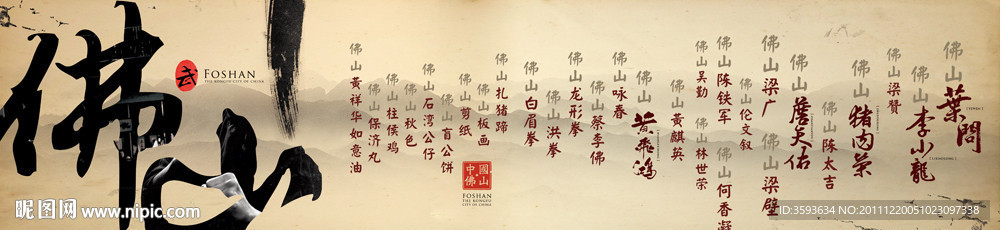 佛山
武
FOSHAN
THE KUNGFU CITY OF CHINA
佛山葉問
佛山李小龍
佛山梁贊
佛山陈太吉
佛山詹天佑
佛山梁广
佛山梁壁
佛山陈铁军
佛山何香凝
佛山伦文叙
佛山吴勤
佛山林世荣
佛山黄麒英
佛山黄飛鴻
佛山咏春
佛山蔡李佛
佛山龙形拳
佛山洪拳
佛山白眉拳
佛山扎猪蹄
佛山板画
佛山剪纸
佛山盲公饼
佛山石湾公仔
佛山秋色
佛山柱侯鸡
佛山保济丸
佛山黄祥华如意油
中國佛山
FOSHAN
THE KUNGFU
CITY OF CHINA
昵图网 www.nipic.com
ID:3593634 NO:20111220051023097338